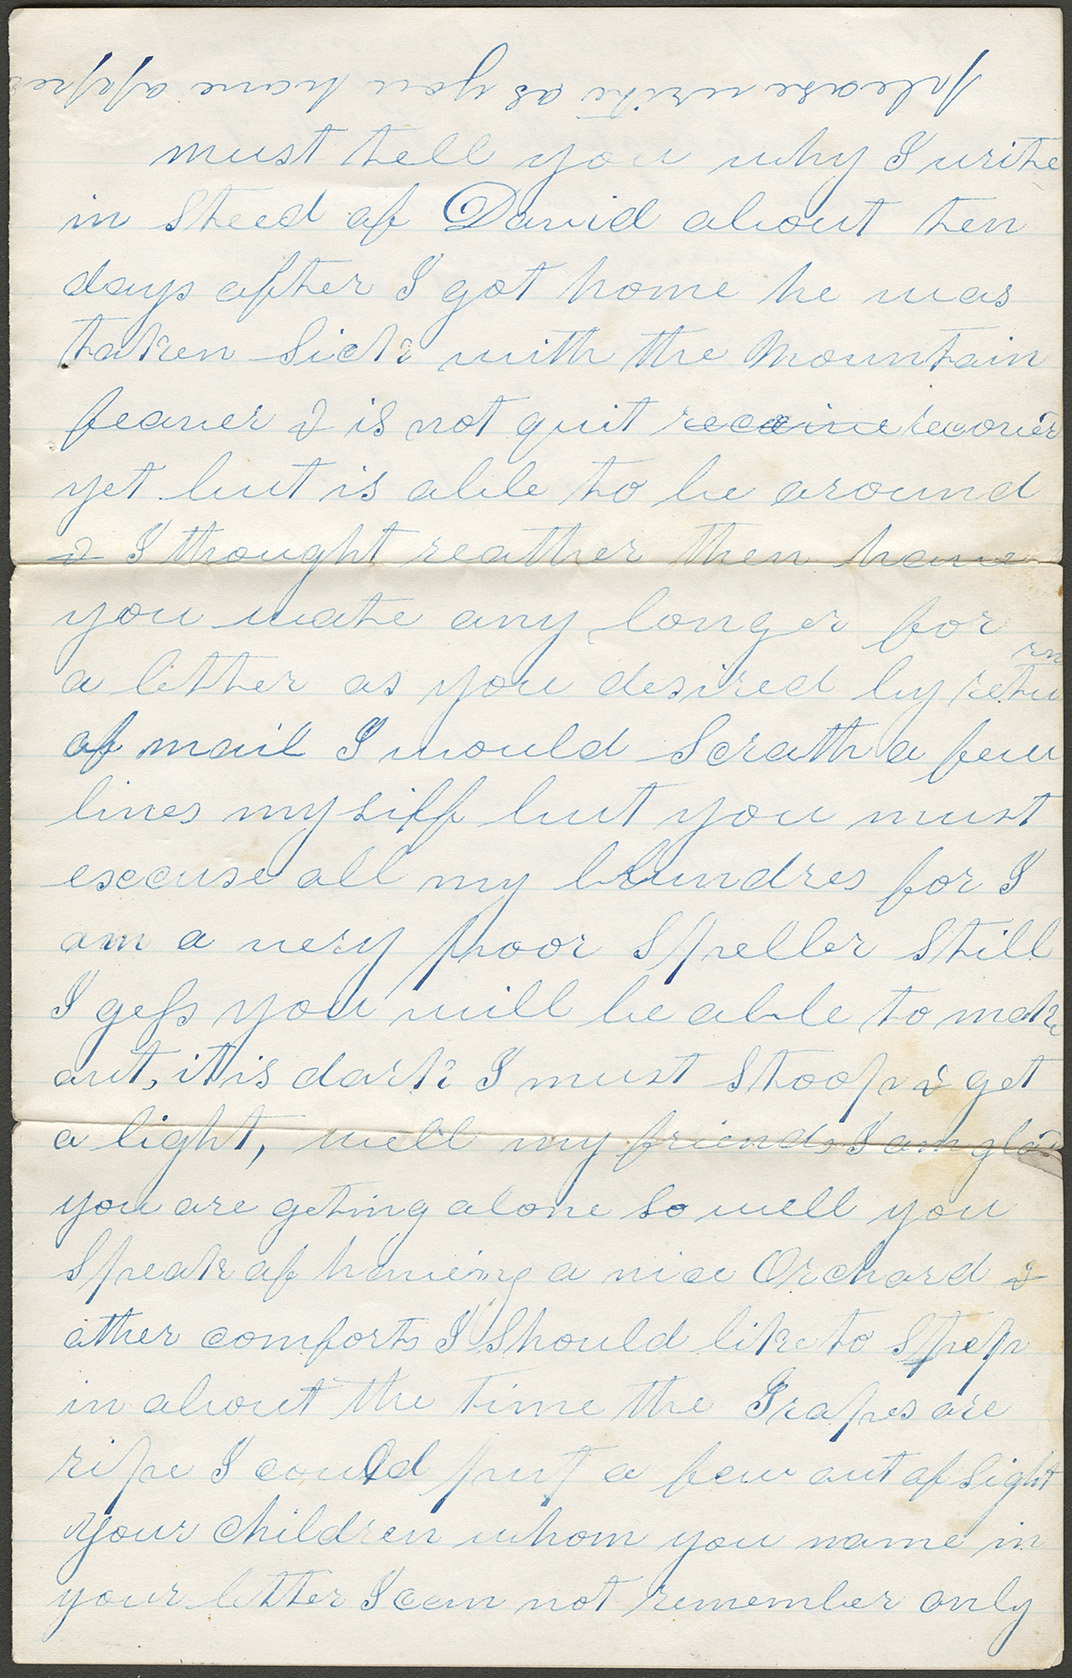 please write as you have oppe
must tell you why I write
in steed of David about ten
days after I got home he was
taken Sick with the Mountain
feaver & is not quit receive recover
yet but is able to be around
& I thought reather then have
you wate any longer for
a letter as you desired by return
of mail I would Scrath a few
lines my silf but you must
escuse all my blundres for I
am a very poor Speller Still
I gess you will be able to make
out, it is dark I must Stoop & get
a light, well my friends I am glad
you are geting alone so well you
Speak of haveing a nice Orchard &
other comforts I Should like to Step
in about the time the Grapes are
ripe I could put a few out of Sight
your Children whom you name in
your letter I can not remember only